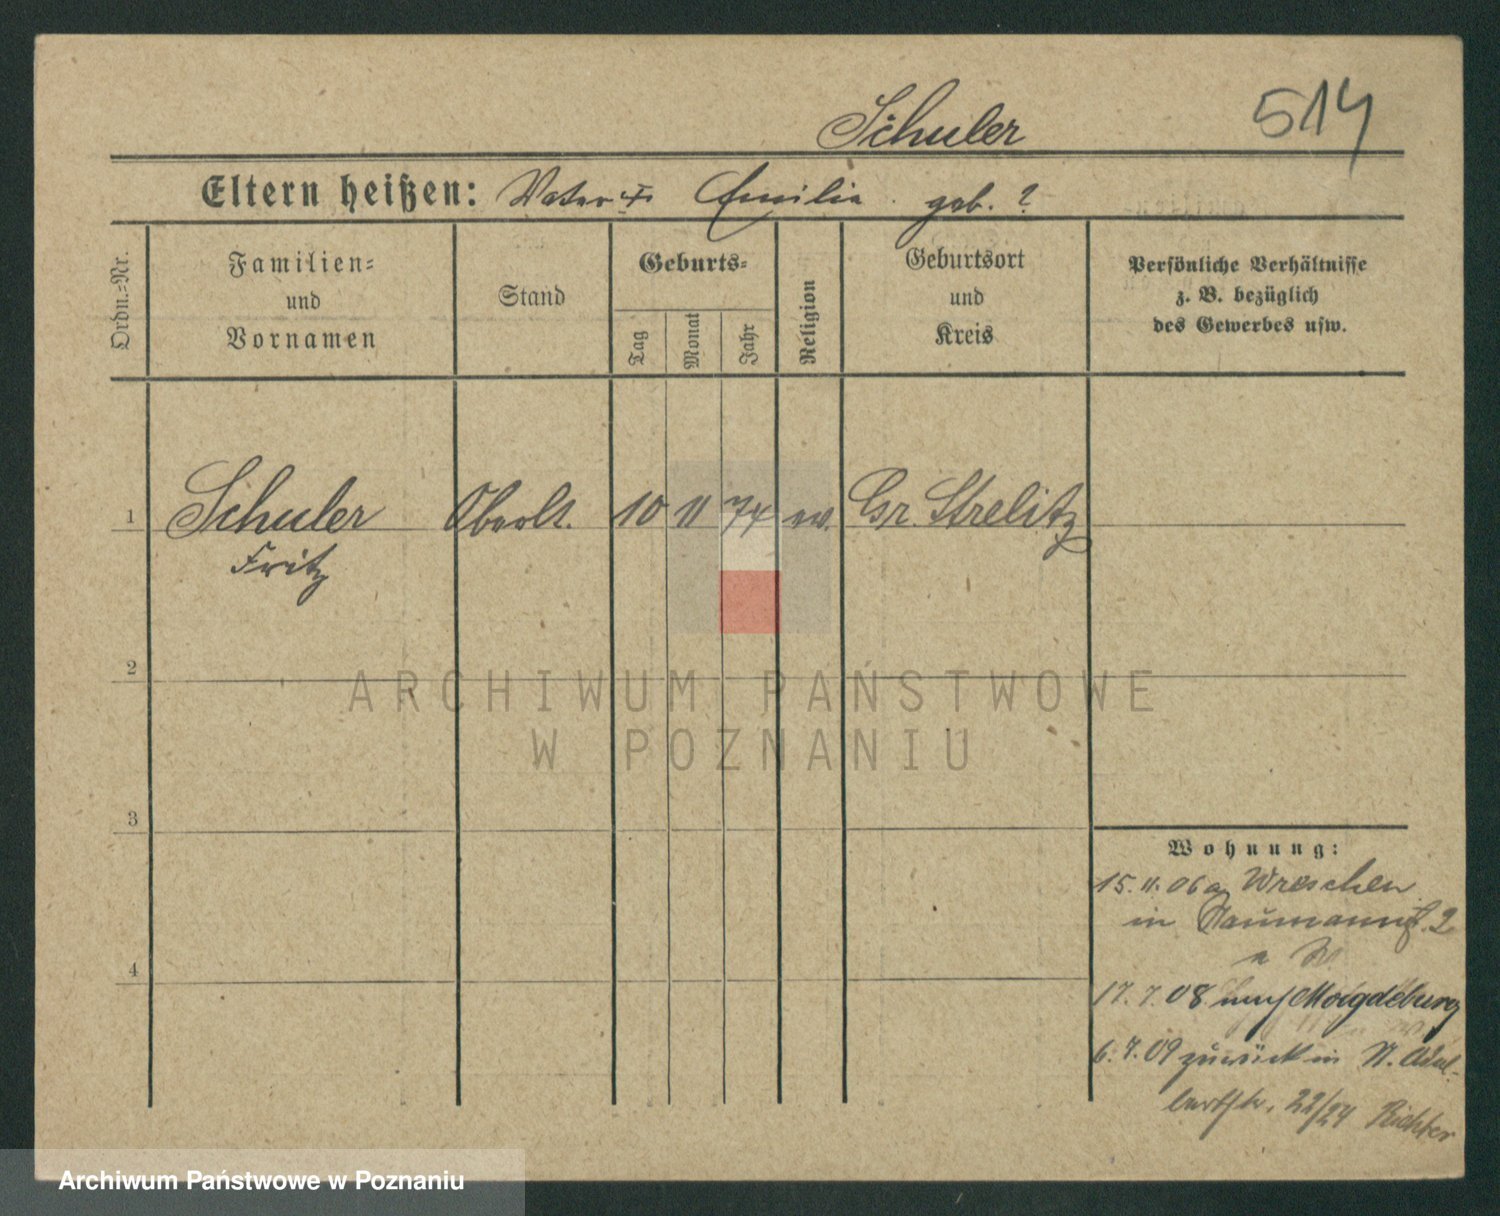 Schuler
514
Eltern heißen: Vater: F. Emilie geb. ?
Ordn.-Nr.
Familien-
und
Vornamen
Stand
Geburts-
Tag
Monat
Jahr
Religion
Geburtsort
und
Kreis
Persönliche Verhältnisse
z. B. bezüglich
des Gewerbes usw.
1 Schuler Oberlt. 10 11 74 ev. Gr. Strelitz
Fritz
2
3
4
Wohnung:
15. 11. 06 a Wreschen
in Naumannstr. 2
17. 7. 08 nach Magdeburg
6. 7. 09 zurück in N. Adal-
bertstr. 22/24 Richter
ARCHIWUM PAŃSTWOWE
W POZNANIU
Archiwum Państwowe w Poznaniu